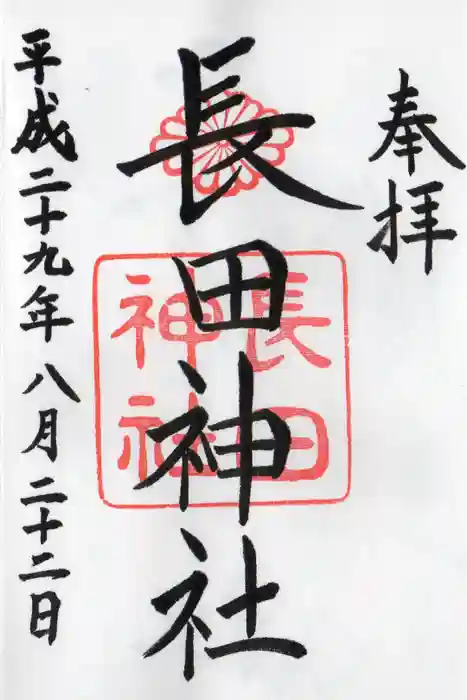 奉拝
長田神社
長田
神社
平成二十九年八月二十二日